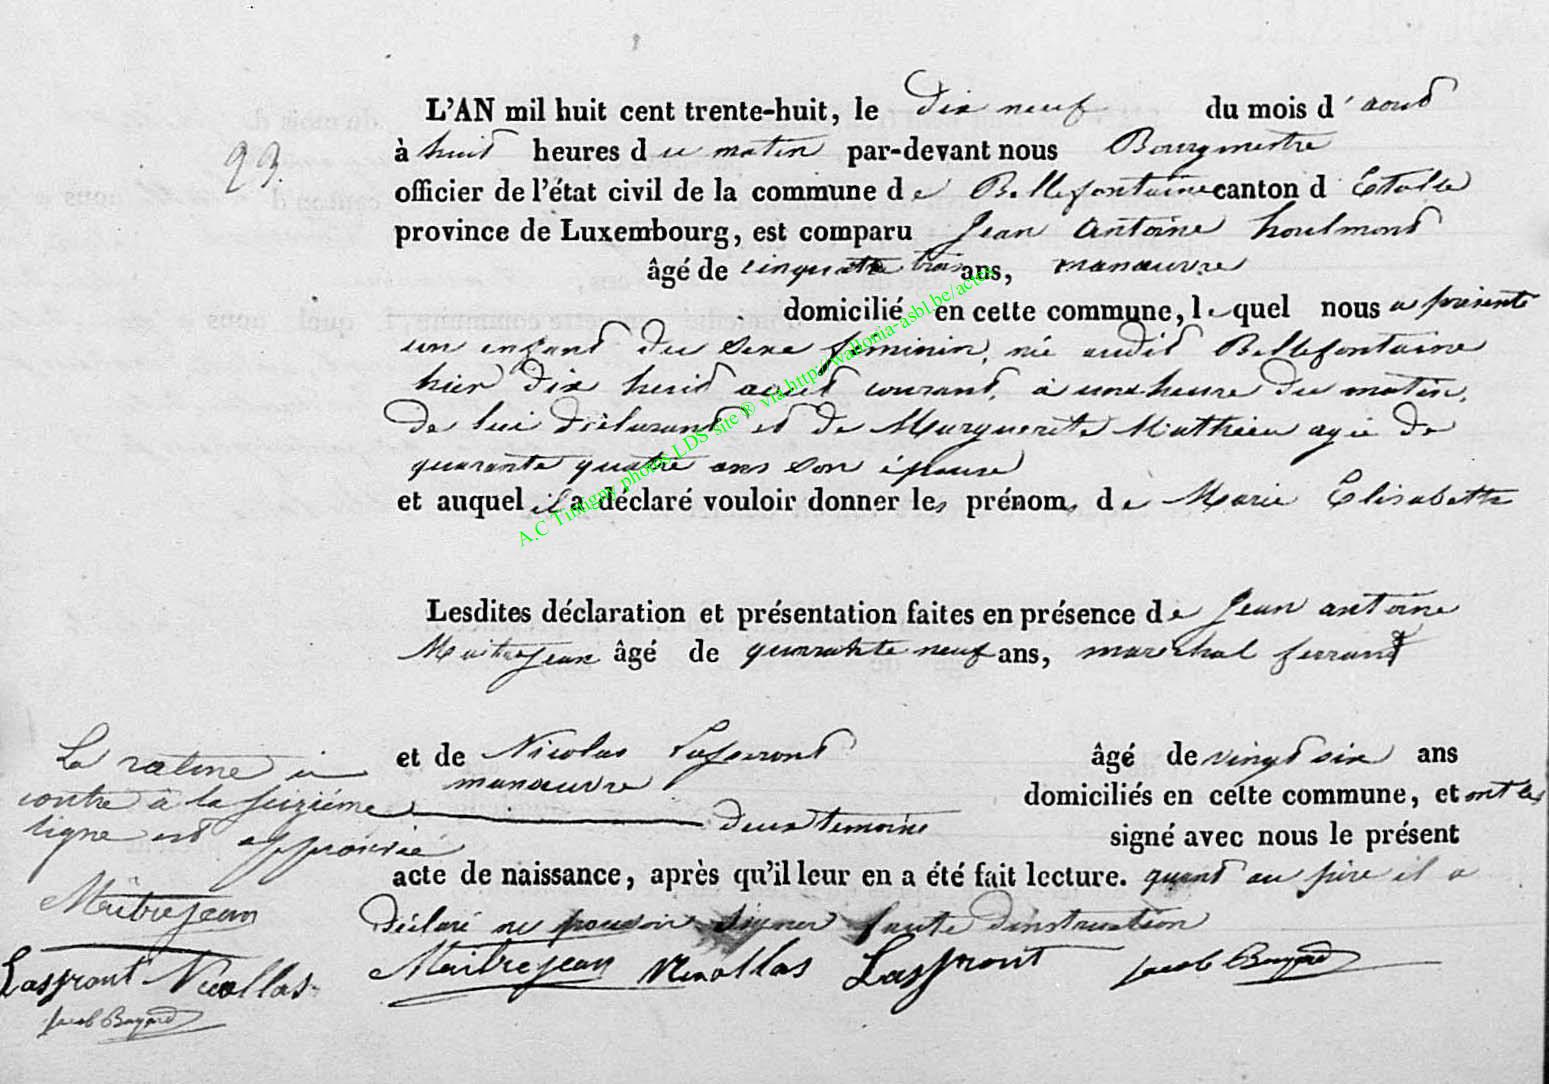 L'AN mil huit cent trente-huit, le dix neuf du mois d'aout
23.
à huit heures du matin par-devant nous Bourgmestre
officier de l'état civil de la commune de Bellefontaine canton d'Etalle
province de Luxembourg, est comparu Jean Antoine houlmont
âgé de cinquante trois ans, manœuvre
domicilié en cette commune, lequel nous a présenté
un enfant du sexe féminin, né audit Bellefontaine
hier dix huit aout courant, à une heure du matin,
de lui déclarant et de Marguerite Mathieu agée de
quarante quatre ans son épouse
et auquel il a déclaré vouloir donner les prénoms de Marie Elisabeth
Lesdites déclaration et présentation faites en présence de Jean antoine
Maitrejean âgé de quarante neuf ans, marechal ferrant
et de Nicolas Lafront âgé de vingt six ans
manœuvre domiciliés en cette commune, et ont les
deux temoins signé avec nous le présent
acte de naissance, après qu'il leur en a été fait lecture. quant au père il a
déclaré ne pouvoir signer faute d'instruction
Maitrejean Nicollas Lassront Jacob Bayard
La rature ci
contre à la seizième
ligne est approuvée
Maitrejean
Lassront Nicollas
Jacob Bayard
A.C Tintigny photos LDS site ® via http://wallonia-asbl.be/actes